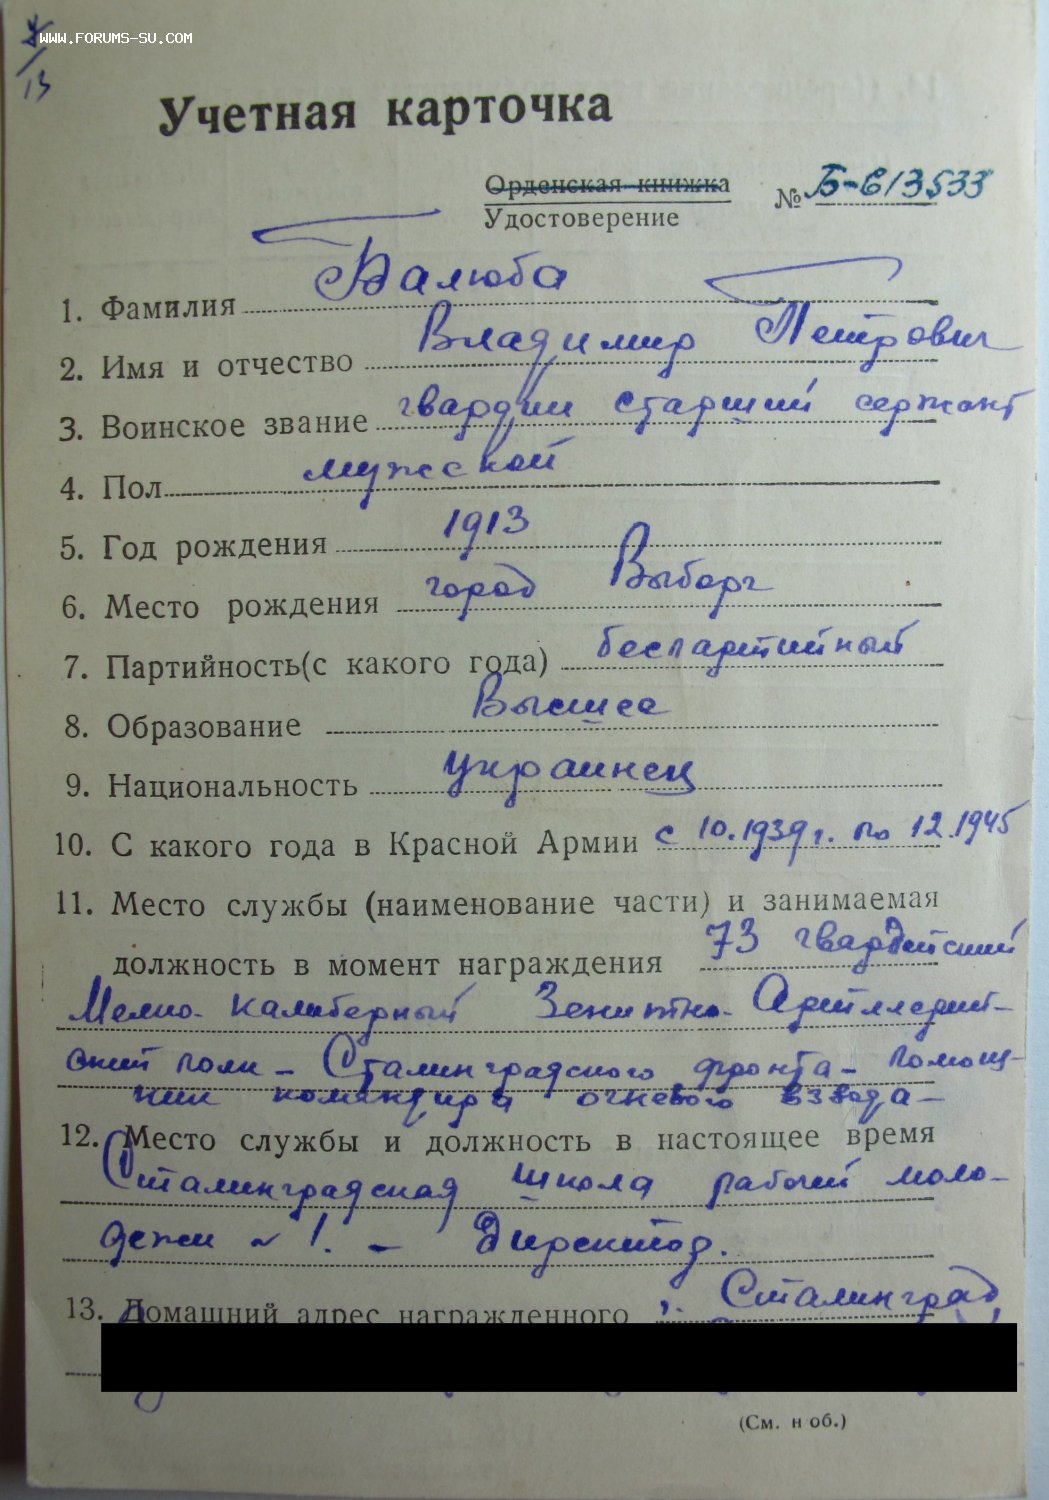 www.forums-su.com
13
Учетная карточка
Орденская книжка
Удостоверение № Б-613533
1. Фамилия Балюба
2. Имя и отчество Владимир Петрович
3. Воинское звание гвардии старший сержант
4. Пол мужской
5. Год рождения 1913
6. Место рождения город Выборг
7. Партийность(с какого года) беспартийный
8. Образование Высшее
9. Национальность украинец
10. С какого года в Красной Армии с 10.1939г. по 12.1945
11. Место службы (наименование части) и занимаемая
должность в момент награждения 73 гвардейский
Мелко-калиберный Зенитно-Артиллерий-
ский полк - Сталинградского фронта - помощ-
ник командира огневого взвода -
12. Место службы и должность в настоящее время
Сталинградская школа рабочей моло-
дежи № 1. - Директор.
13. Домашний адрес награжденного г. Сталинград
(См. н об.)